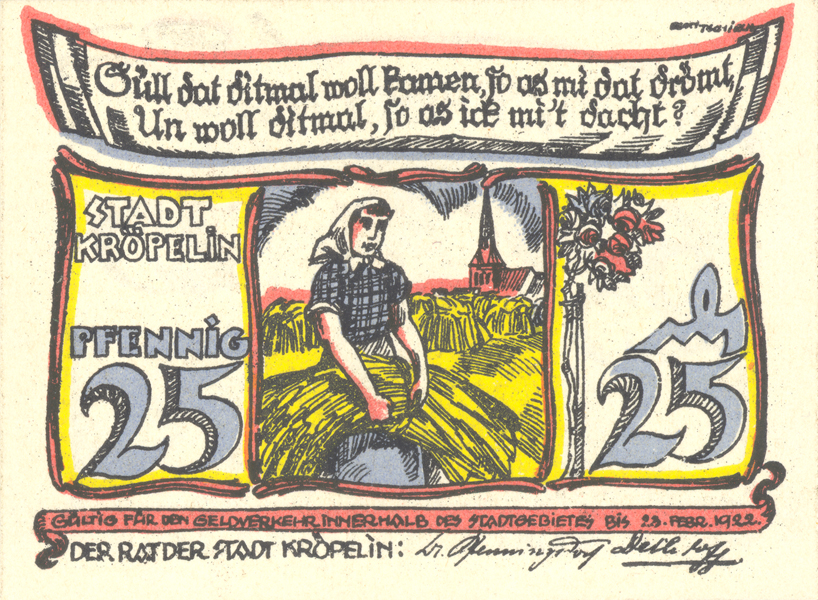 Süll dat ditmal woll kamen, so as mi dat drömt,
Un woll ditmal, so as ick mi't dacht?
STADT
KRÖPELIN
PFENNIG
25
25
GÜLTIG FÜR DEN GELDVERKEHR INNERHALB DES STADTGEBIETES BIS 28. FEBR. 1922.
DER RAT DER STADT KRÖPELIN: Dr. Pfenningsdorf